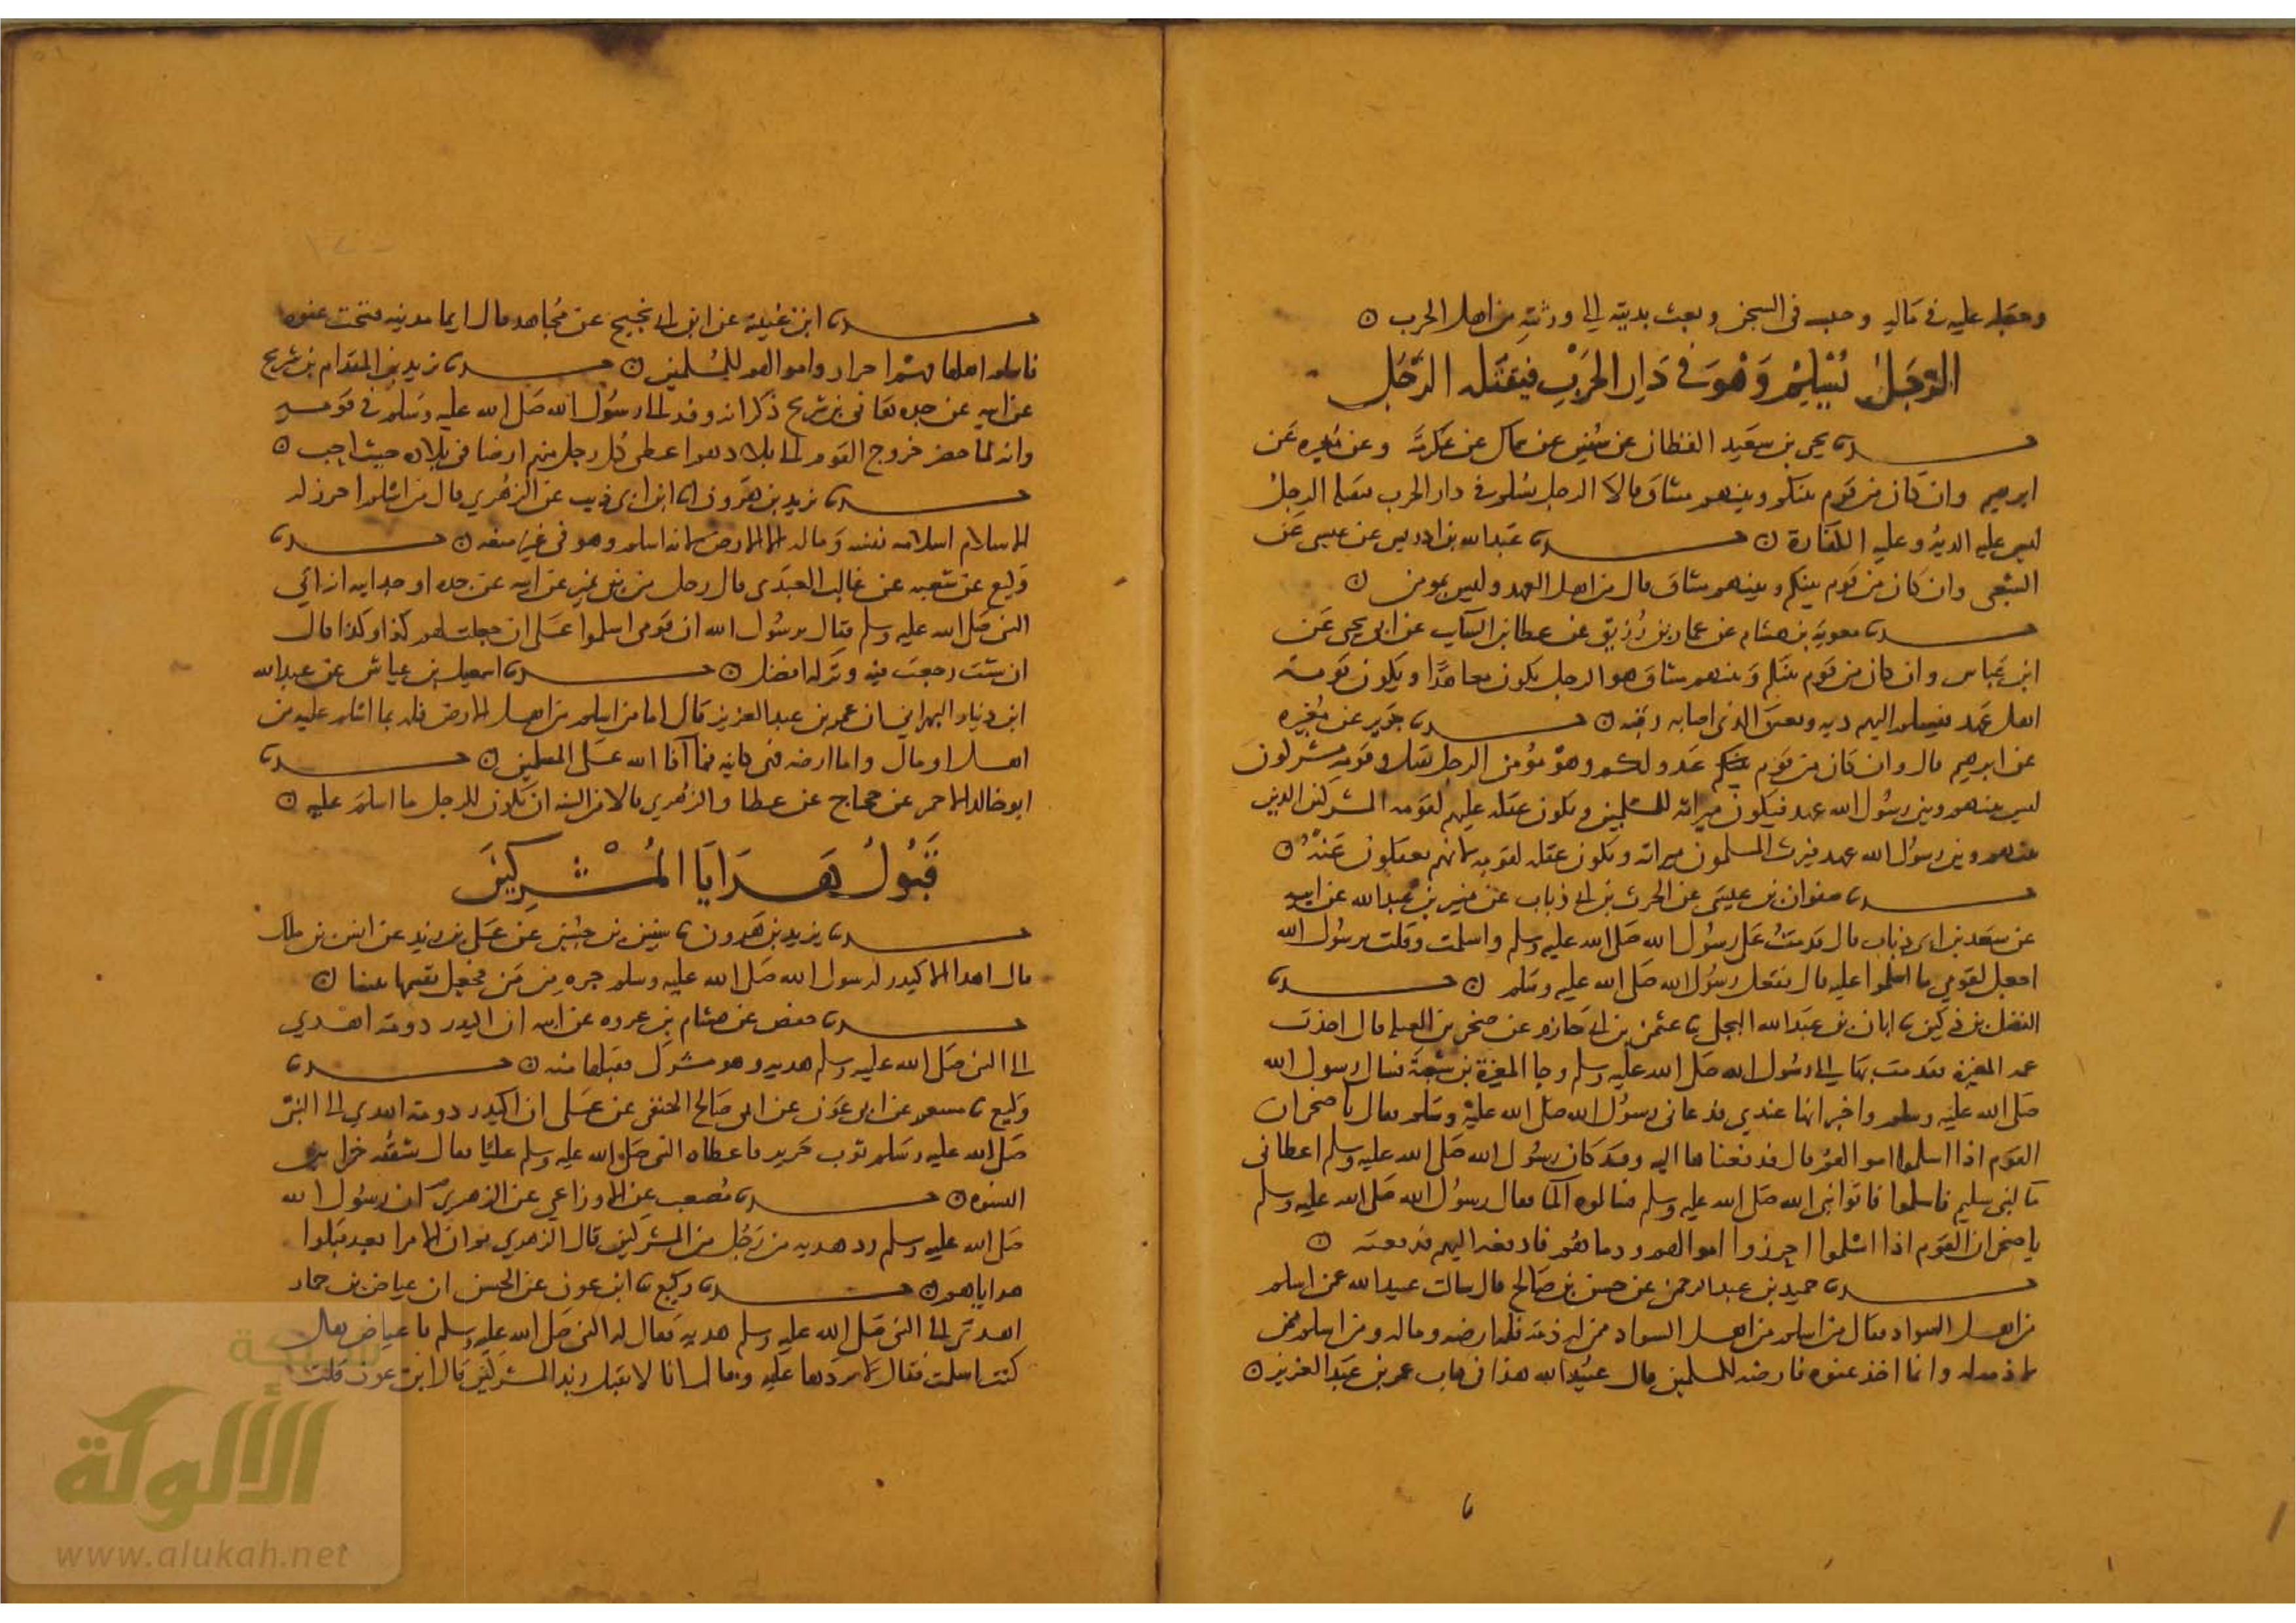 وجعله عليه في ماله وحبسه في السجن وبعث بديته الى ورثته من اهل الحرب ٥
الرَّجُلُ يُسْلِمُ وَهُوَ فِي دَارِ الحَرْبِ فيقتله الرَّجُل
حدثنا يحيى بن سعيد القطان عن سفين عن سماك عن عكرمة وعن مغيرة عن
ابرهيم وان كان من قوم بينكم وبينهم ميثاق قالا الرجل يسلم في دار الحرب فيقتله الرجل
ليس عليه الدية وعليه الكفارة ٥ حدثنا عبد الله بن ادريس عن عيسى عن
الشعبي وان كان من قوم بينكم وبينهم ميثاق قال من اهل العهد وليس بمومن ٥
حدثنا معوية بن هشام عن عمار بن رُزيق عن عطا بن السايب عن ابي يحيى عن
ابن عباس وان كان من قوم بينكم وبينهم ميثاق هو الرجل يكون معاهدًا ويكون قومه
اهل عهد فيسلم اليهم ديه ويعتق الذي اصابه رقبه ٥ حدثنا جرير عن مغيره
عن ابرهيم قال وان كان من قوم عدو لكم وهو مؤمن الرجل يقتل وقومه مشركون
ليس بينهم وبين رسول الله عهد فيكون ميراثه للمسلمين ويكون عقله عليهم لقومه المشركين الذين
بينهم وبين رسول الله عهد فيرث المسلمون ميراثه ويكون عقله لقومه لانهم يعقلون عنه ٥
حدثنا صفوان بن عيسى عن الحرث بن ابي ذباب عن منير بن عبد الله عن ابيه
عن سعد بن ابي ذباب قال قدمتُ على رسول الله صلى الله عليه وسلم واسلمت وقلت يرسول الله
اجعل لقومي ما اسلموا عليه قال ففعل رسول الله صلى الله عليه وسلم ٥ حدثنا
الفضل بن دكين نا ابان بن عبد الله البجلي نا عثمن بن ابي حازم عن صخر بن العيله قال اخذت
عمه المغيرة فقدمت بها الى رسول الله صلى الله عليه وسلم وجا المغيرة بن شعبة فسال رسول الله
صلى الله عليه وسلم واخبر انها عندي فدعاني رسول الله صلى الله عليه وسلم فقال يا صخر ان
القوم اذا اسلموا اموالهم قال فدفعناها اليه وقد كان رسول الله صلى الله عليه وسلم اعطاني
ما لبني سليم فاسلموا فاتوا نبي الله صلى الله عليه وسلم فسالوه الما فقال رسول الله صلى الله عليه وسلم
يا صخر ان القوم اذا اسلموا احرزوا اموالهم ودماهم فادفعه اليهم فدفعته ٥
حدثنا حميد بن عبد الرحمن عن حسن بن صالح قال سالت عبيد الله عمن اسلم
من اهل السواد فقال من اسلم من اهل السواد ممن له ذمة فله ارضه وماله ومن اسلم ممن
لا ذمه له وانما اخذ عنوه فارضه للمسلمين قال عبيد الله هذا في كتاب عمر بن عبد العزيز ٥
حدثنا ابن عيينة عن ابن ابي نجيح عن مجاهد قال ايما مدينه فتحت عنوه
فاسلم اهلها فهم احرار واموالهم للمسلمين ٥ حدثنا يزيد بن المقدام بن شريح
عن ابيه عن جده هاني بن شريح ذكر انه وفد الى رسول الله صلى الله عليه وسلم في قومه
وانه لما حضر خروج القوم الى بلادهم اعطى كل رجل منهم ارضا في بلاده حيث احب ٥
حدثنا يزيد بن هرون انا ابن ابي ذيب عن الزهري قال من اسلم احرز له
الاسلام اسلامه نفسه وماله الا الارض لانه اسلم وهو في غير منعه ٥ حدثنا
وكيع عن شعبه عن غالب العبدي قال رجل من بني نمير عن ابيه عن جده او جد ابيه انه اتي
النبي صلى الله عليه وسلم فقال يرسول الله ان قومي اسلموا على ان جعلت لهم كذا وكذا قال
ان شئت رجعت فيه وتركه افضل ٥ حدثنا اسمعيل بن عياش عن عبد الله
ابن دينار البهراني ان عمر بن عبد العزيز قال اما من اسلم من اهل الارض فله ما اسلم عليه من
اهل او مال واما ارضه فهي كاينه فيما آفا الله على المسلمين ٥ حدثنا
ابو خالد الاحمر عن حجاج عن عطا والزهري قالا من السنه ان يكون للرجل ما اسلم عليه ٥
قَبُولُ هَدَايَا المُشْرِكِينَ
حدثنا يزيد بن هرون نا سفين بن حسين عن علي بن زيد عن انس بن ملك
قال اهدا الاكيدر لرسول الله صلى الله عليه وسلم جره من مَنّ فجعل يقسمها بيننا ٥
حدثنا حفص عن هشام بن عروه عن ابيه ان اكيدر دومه اهدي
الى النبي صلى الله عليه وسلم هديه وهو مشرك فقبلها منه ٥ حدثنا
وكيع نا مسعر عن ابي عون عن ابي صالح الحنفي عن علي ان اكيدر دومه اهدي الى النبي
صلى الله عليه وسلم ثوب حرير فاعطاه النبي صلى الله عليه وسلم عليًا فقال شققه خمرا بين
النسوه ٥ حدثنا مُصعب عن الاوزاعي عن الزهري ان رسول الله
صلى الله عليه وسلم رد هديه من رجل من المشركين قال الزهري ثم ان الامرا بعد قبلوا
هداياهم ٥ حدثنا وكيع نا ابن عون عن الحسن ان عياض بن حماد
اهدى الى النبي صلى الله عليه وسلم هديه فقال له النبي صلى الله عليه وسلم يا عياض هل
كنت اسلمت فقال لا فردها عليه وقال انا لا نقبل زبد المشركين قال ابن عون قلت
شبكة
الألوكة
www.alukah.net